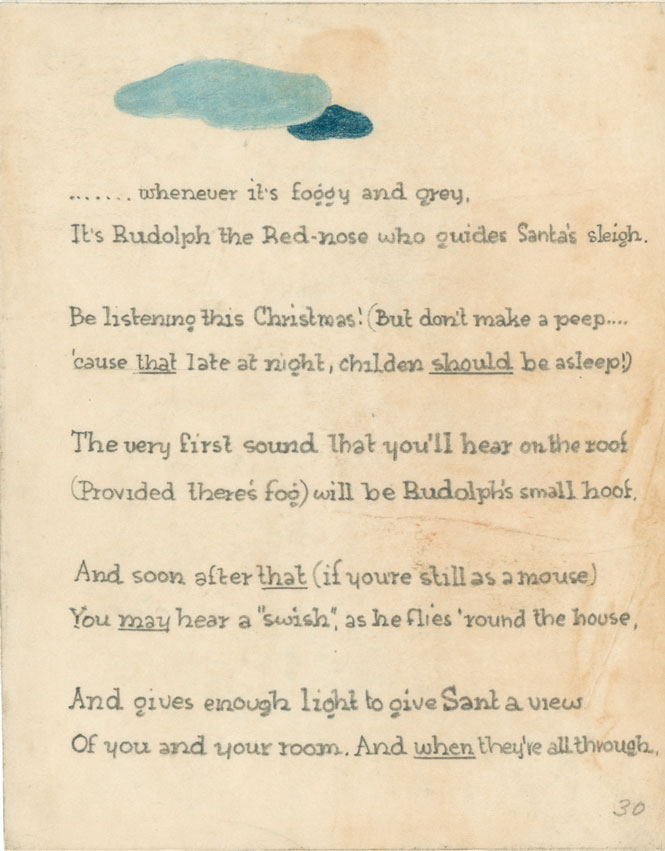 ....... whenever it's foggy and grey,
It's Rudolph the Red-nose who guides Santa's sleigh.
Be listening this Christmas! (But don't make a peep....
'cause that late at night, childen should be asleep!)
The very first sound that you'll hear on the roof
(Provided there's fog) will be Rudolph's small hoof.
And soon after that (if youre still as a mouse)
You may hear a "swish", as he flies 'round the house,
And gives enough light to give Sant a view
Of you and your room. And when they're all through,
30